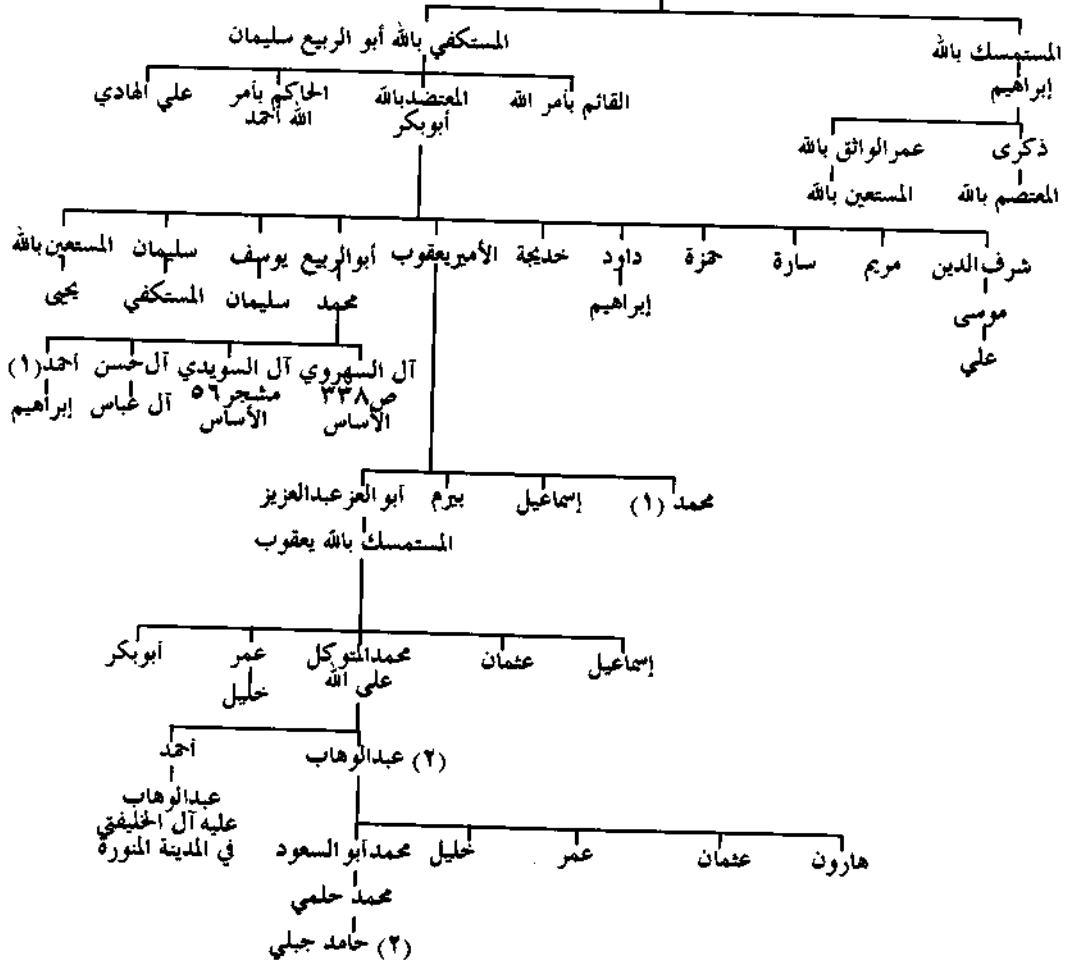 المستكفي بالله أبو الربيع سليمان
المستمسك بالله
إبراهيم
القائم بأمر الله
المعتضدبالله
أبوبكر
الحاكم بأمر
الله أحمد
علي الهادي
ذكرى
عمرالواثق بالله
المعتصم بالله
المستعين بالله
شرف الدين
مريم
سارة
حمزة
داود
خديجة
الأميريعقوب
أبوالربيع
يوسف
سليمان
المستعين بالله
موسى
علي
إبراهيم
محمد
سليمان
المستكفي
يحيى
آل السهروي
ص٣٣٨
الأساس
آل السويدي
مشجر٥٦
الأساس
آل حسن
آل عباس
أحمد(١)
إبراهيم
محمد (١)
إسماعيل
بيرم
أبو العز عبدالعزيز
المستمسك بالله يعقوب
إسماعيل
عثمان
محمدالمتوكل
على الله
عمر
خليل
أبوبكر
(٢) عبدالوهاب
أحمد
عبدالوهاب
عليه آل الخليفتي
في المدينة المنورة
هارون
عثمان
عمر
خليل
محمدأبو السعود
محمد حلمي
(٢) حامد جبلي